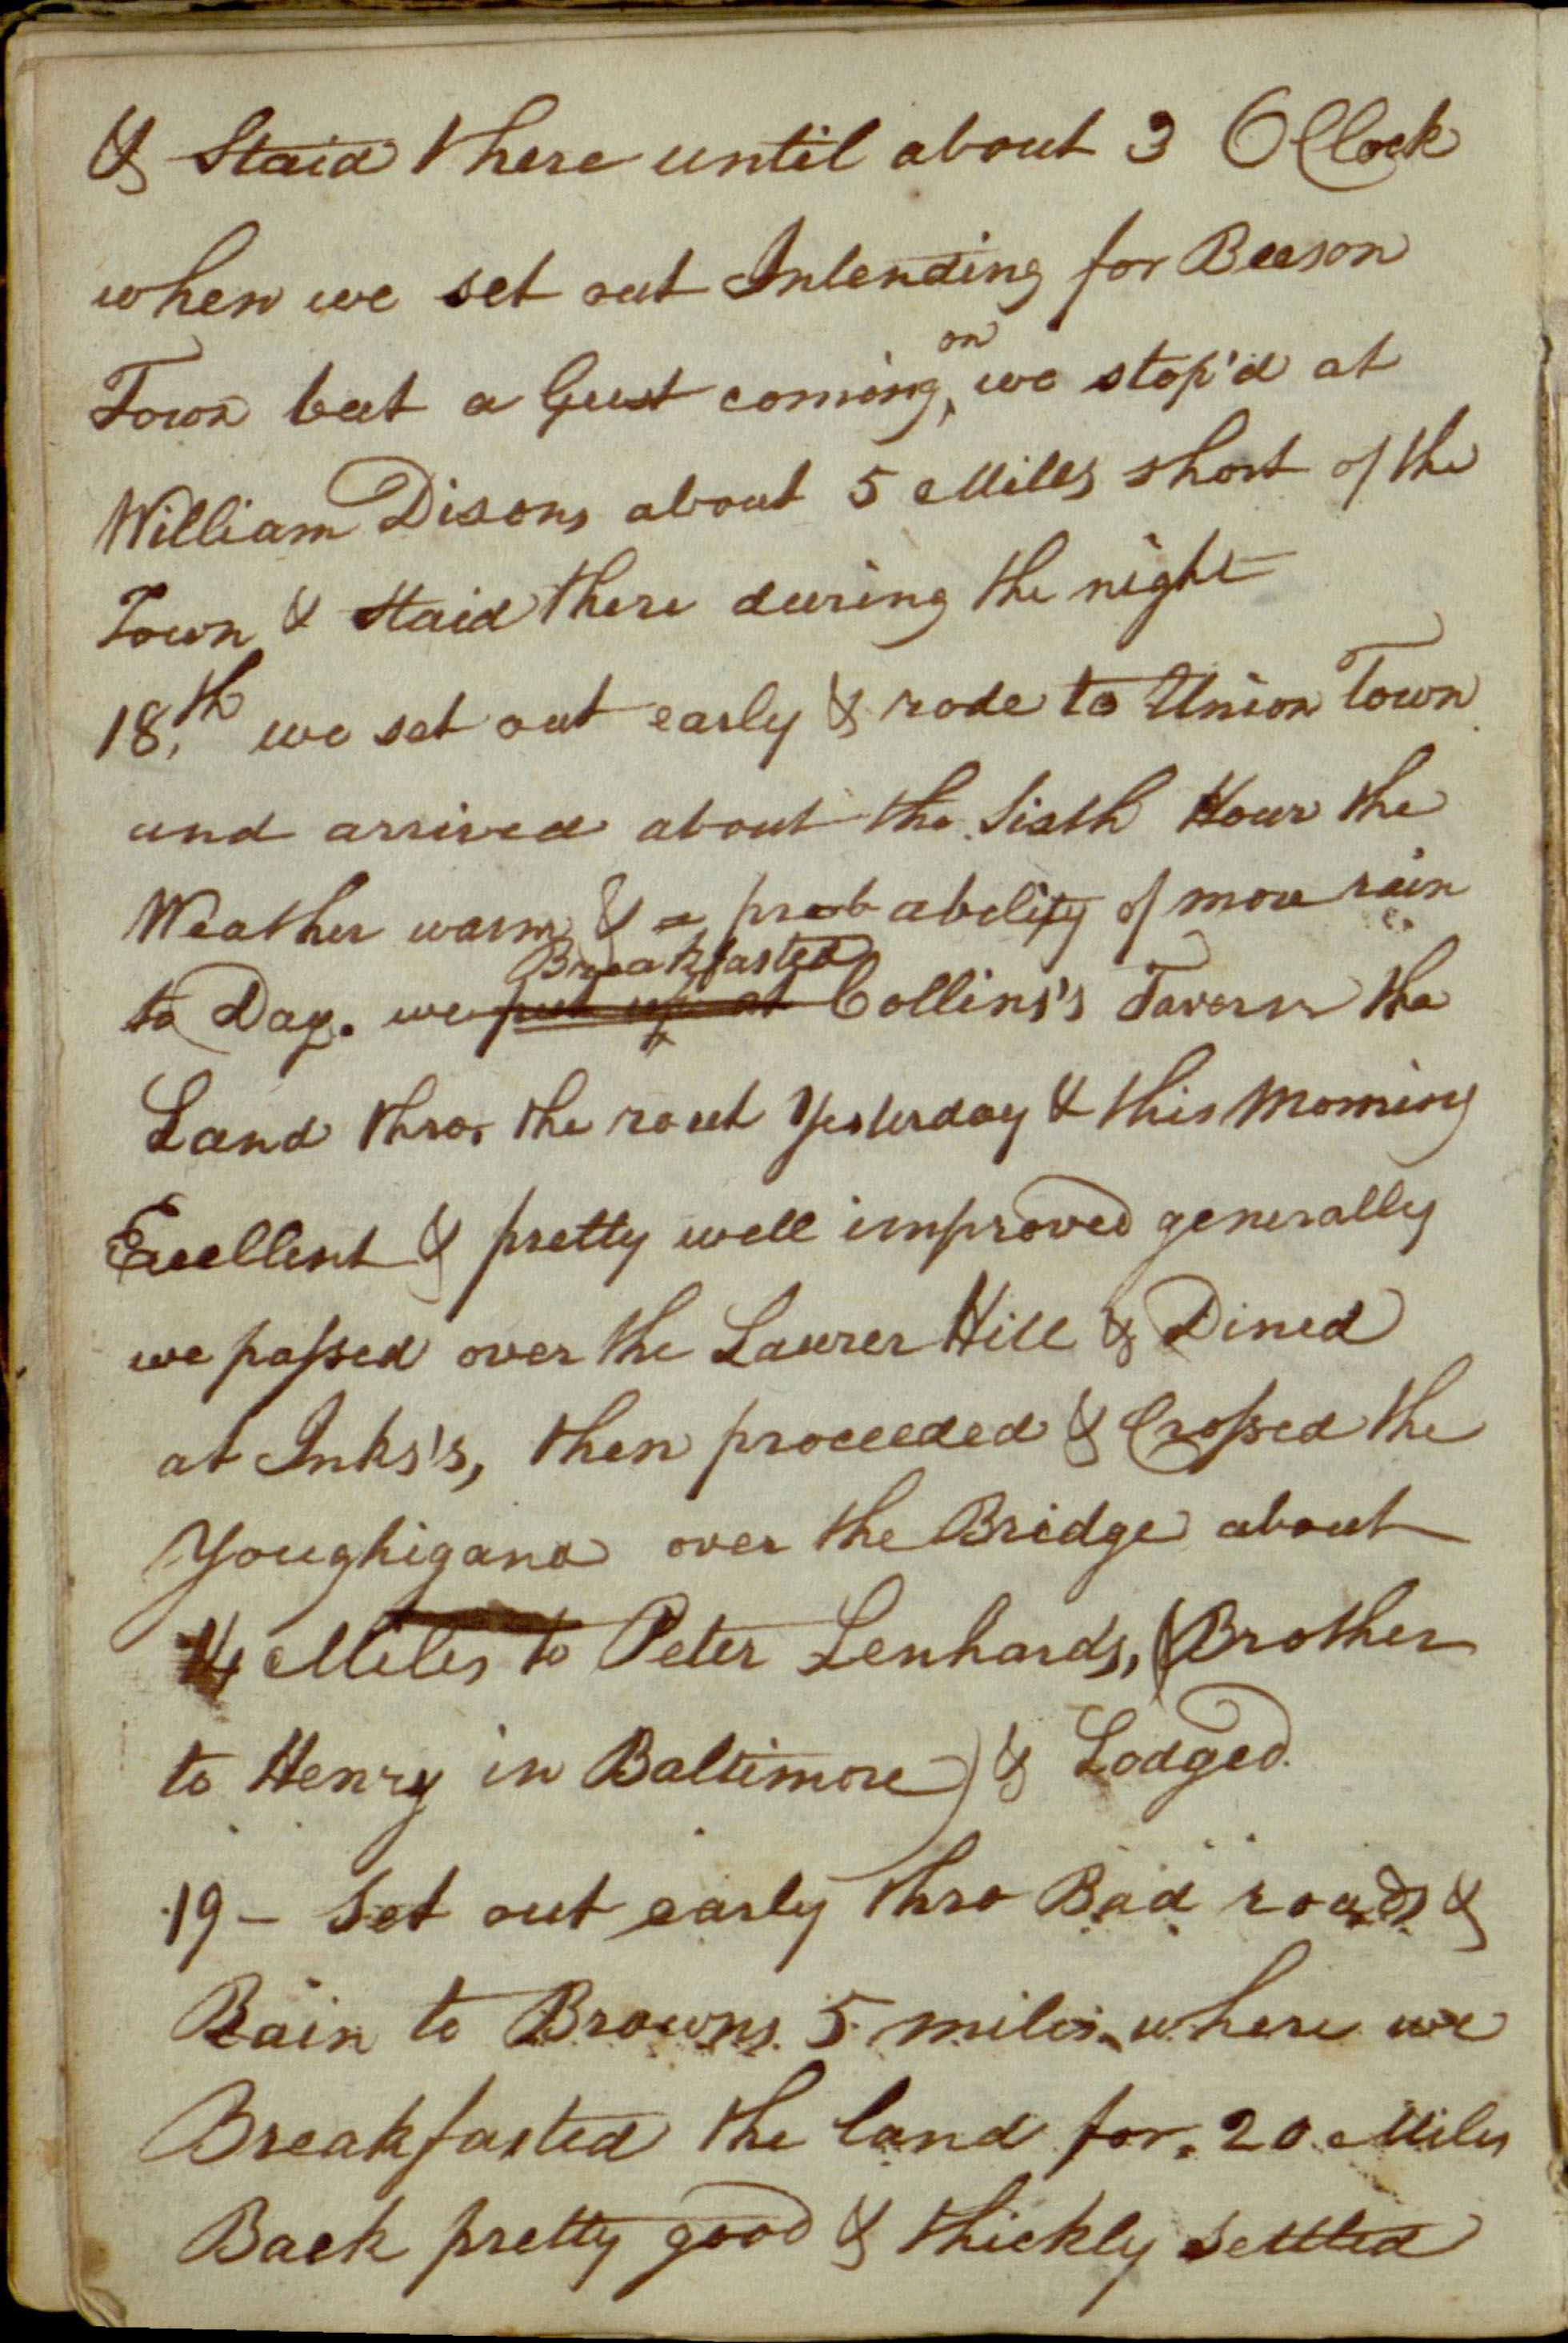 & Staid there until about 3 OClock
when we set out Intending for Beeson
Town but a Gust coming on we stop'd at
William Dixons about 5 Miles short of the
Town & Staid there during the night
18.th we set out early & rode to Union Town
and arrived about the Sixth Hour the
Weather warm & a probability of more rain
to Day. we put up at Breakfasted Collins's Tavern the
Land thro. the rout Yesterday & this Morning
Excellent & pretty well improved generally
we passed over the Laurer Hill & Dined
at Inks's, then proceeded & Crossed the
Youghigana over the Bridge about
14 Miles to Peter Lenhards, (Brother
to Henry in Baltimore) & Lodged.
19 - Set out early thro Bad roads &
Rain to Browns 5 miles where we
Breakfasted the land for 20 Miles
Back pretty good & thickly Settled